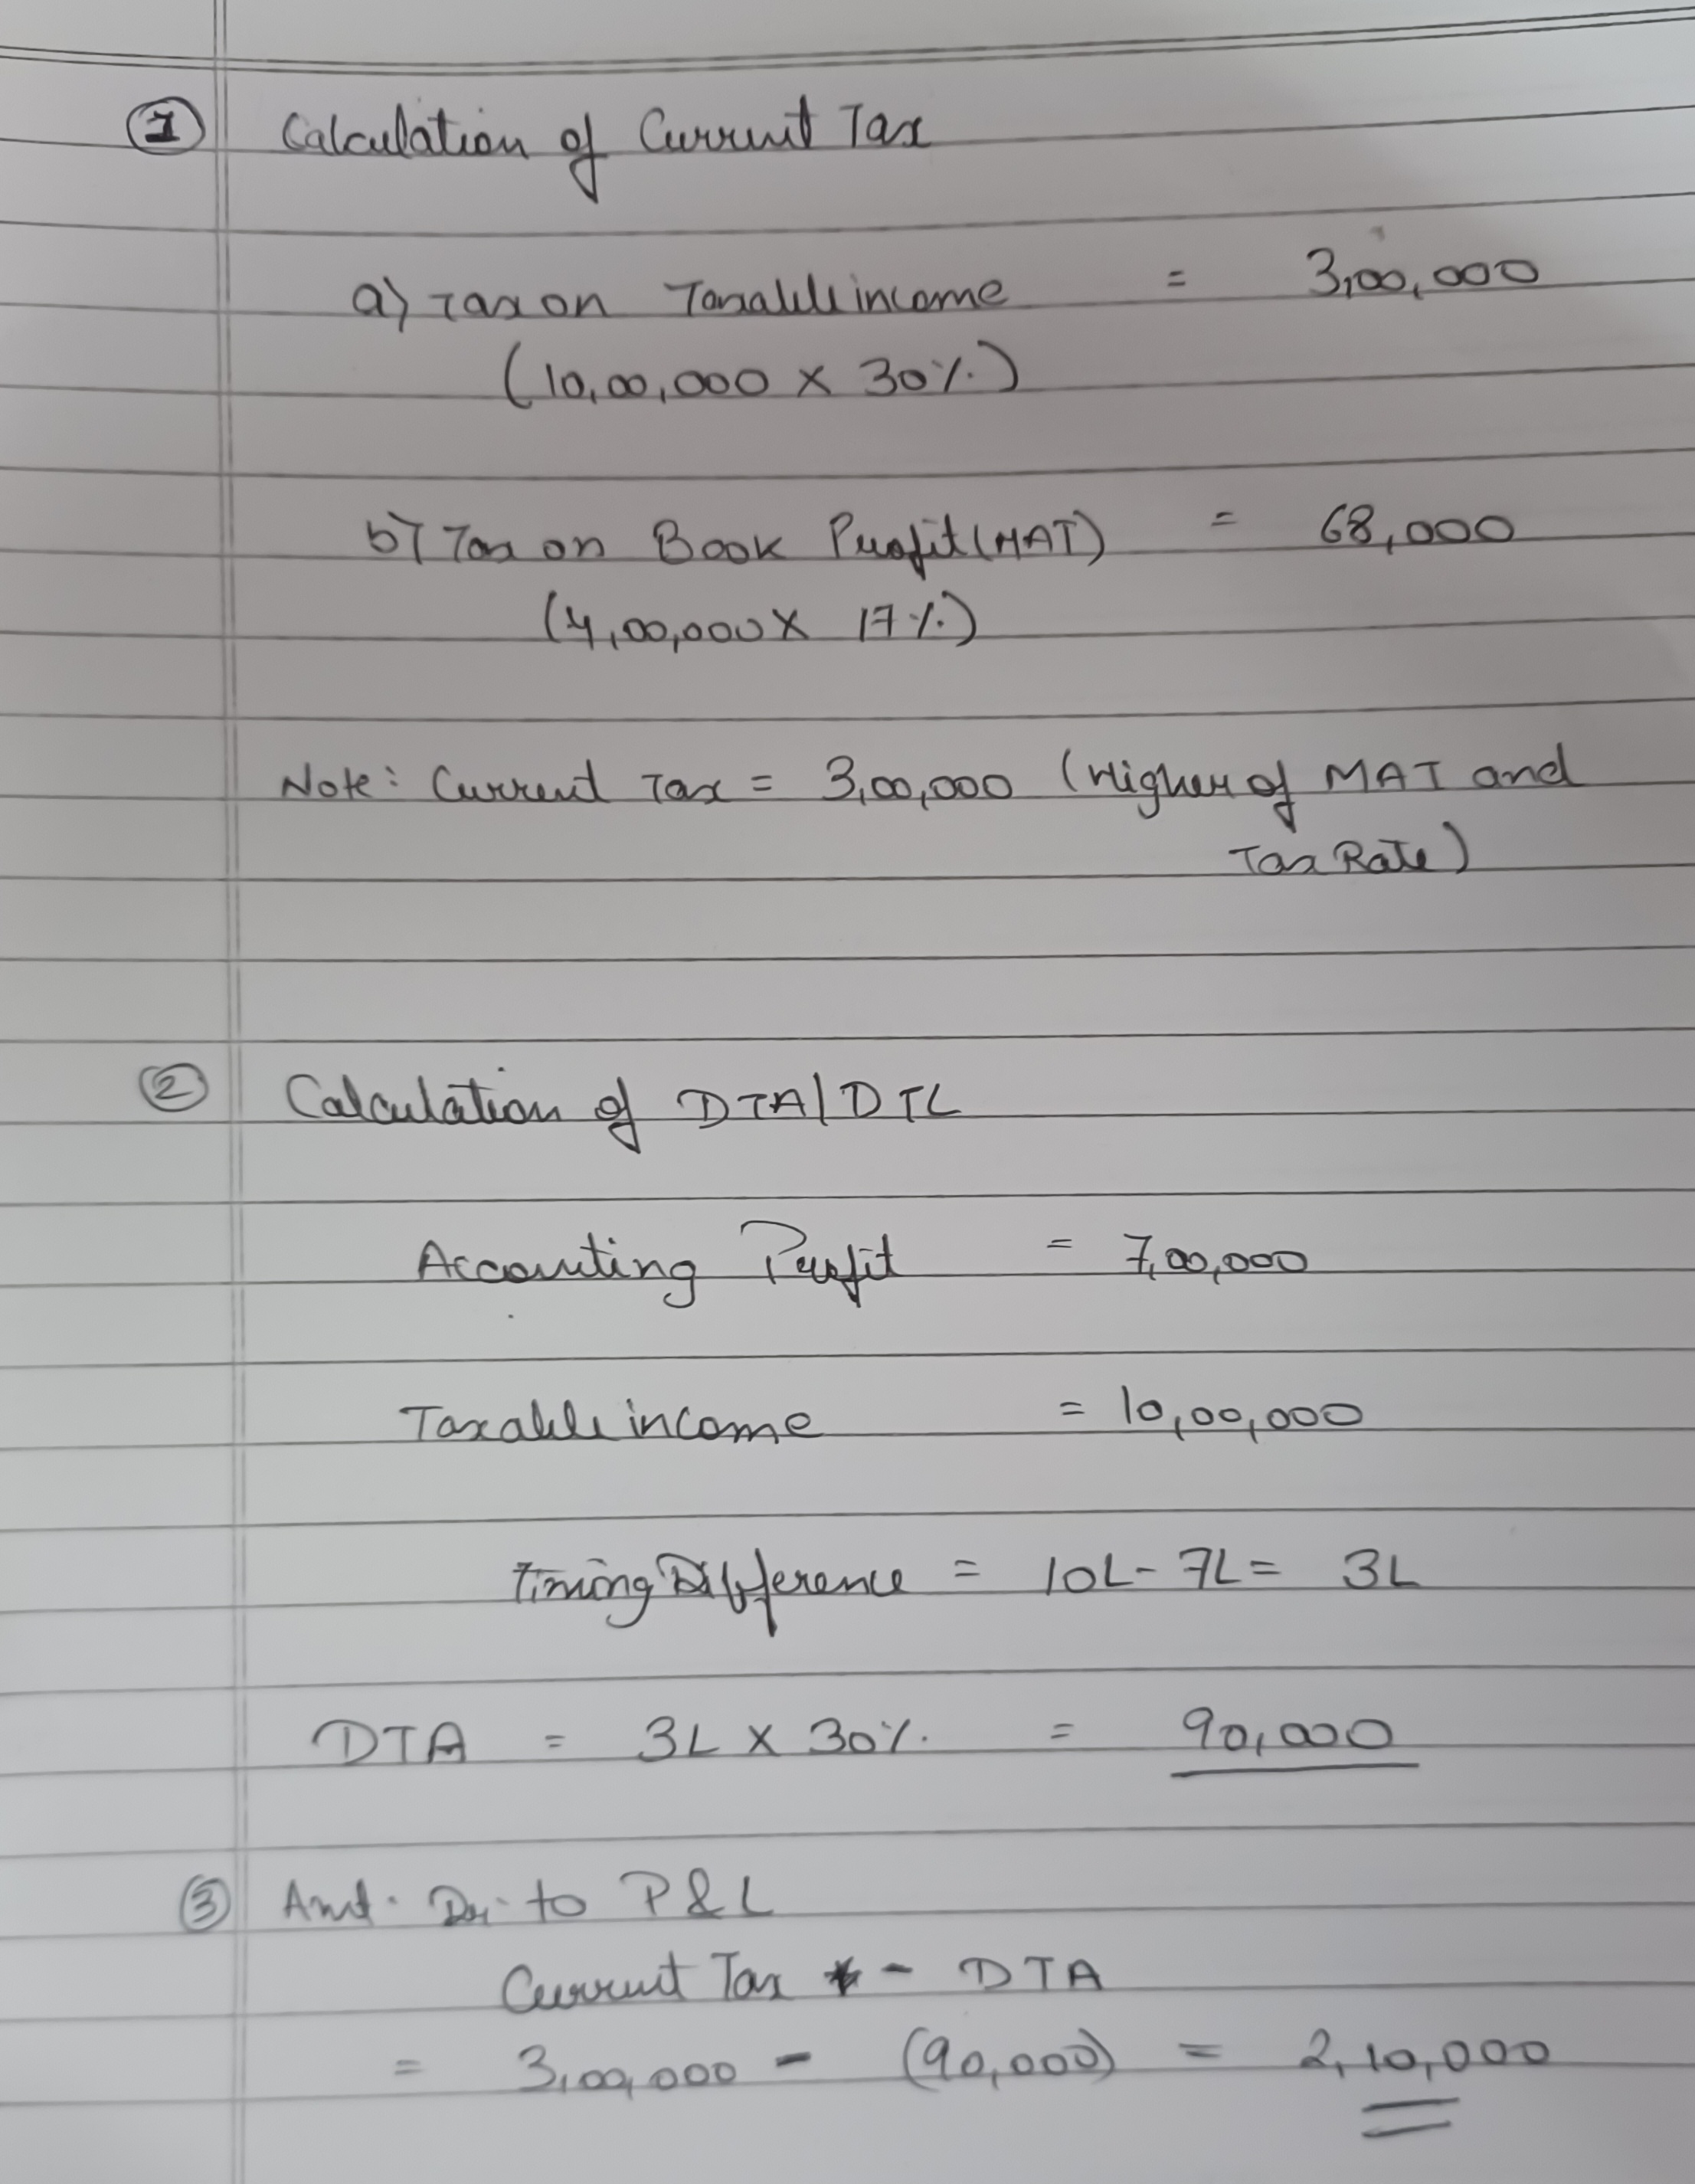 1 Calculation of Current Tax
a) Tax on Taxable income = 3,00,000
(10,00,000 X 30%)
b) Tax on Book Profit (MAT) = 68,000
(4,00,000 X 17%)
Note: Current Tax = 3,00,000 (Higher of MAT and
Tax Rate)
2 Calculation of DTA/DTL
Accounting Profit = 7,00,000
Taxable income = 10,00,000
Timing Difference = 10L - 7L = 3L
DTA = 3L X 30% = 90,000
3 Amt. Dr. to P&L
Current Tax - DTA
= 3,00,000 - (90,000) = 2,10,000